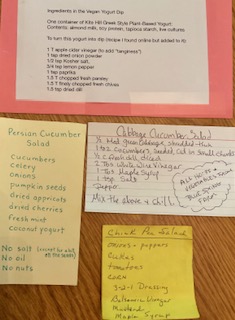 Ingredients in the Vegan Yogurt Dip
One container of Kite Hill Greek Style Plant-Based Yogurt
Contains: almond milk, soy protein, tapioca starch, live cultures
To turn this yogurt into dip (recipe I found online but added to it)
1 T apple cider vinegar (to add "tanginess")
1 tsp dried onion powder
1/2 tsp Kosher salt
3/4 tsp lemon pepper
1 tsp paprika
1.5 T chopped fresh parsley
1.5 T finely chopped fresh chives
1.5 tsp dried dill
Persian Cucumber
Salad
cucumbers
celery
onions
pumpkin seeds
dried apricots
dried cherries
fresh mint
coconut yogurt
No salt
No oil
No nuts
Cabbage Cucumber Salad
1/2 Med green Cabbage, shredded thin
cucumbers, seeded, cut in small chunks
diced
2 Tbs White Wine Vinegar
1 Tbs Maple Syrup
1 tsp Salt
Pepper
Mix the above & chill
Chick Pea Salad
onions + peppers
cukes
tomatoes
corn
3-2-1 Dressing
Balsamic Vinegar
Mustard
Maple Syrup